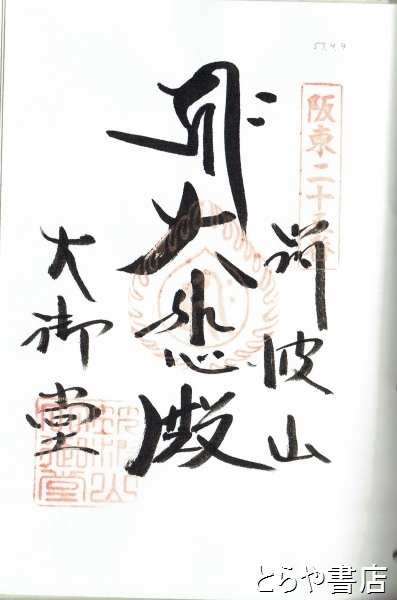 57.4.4
阪東二十五番
筑波山
大悲殿
大御堂
とらや書店